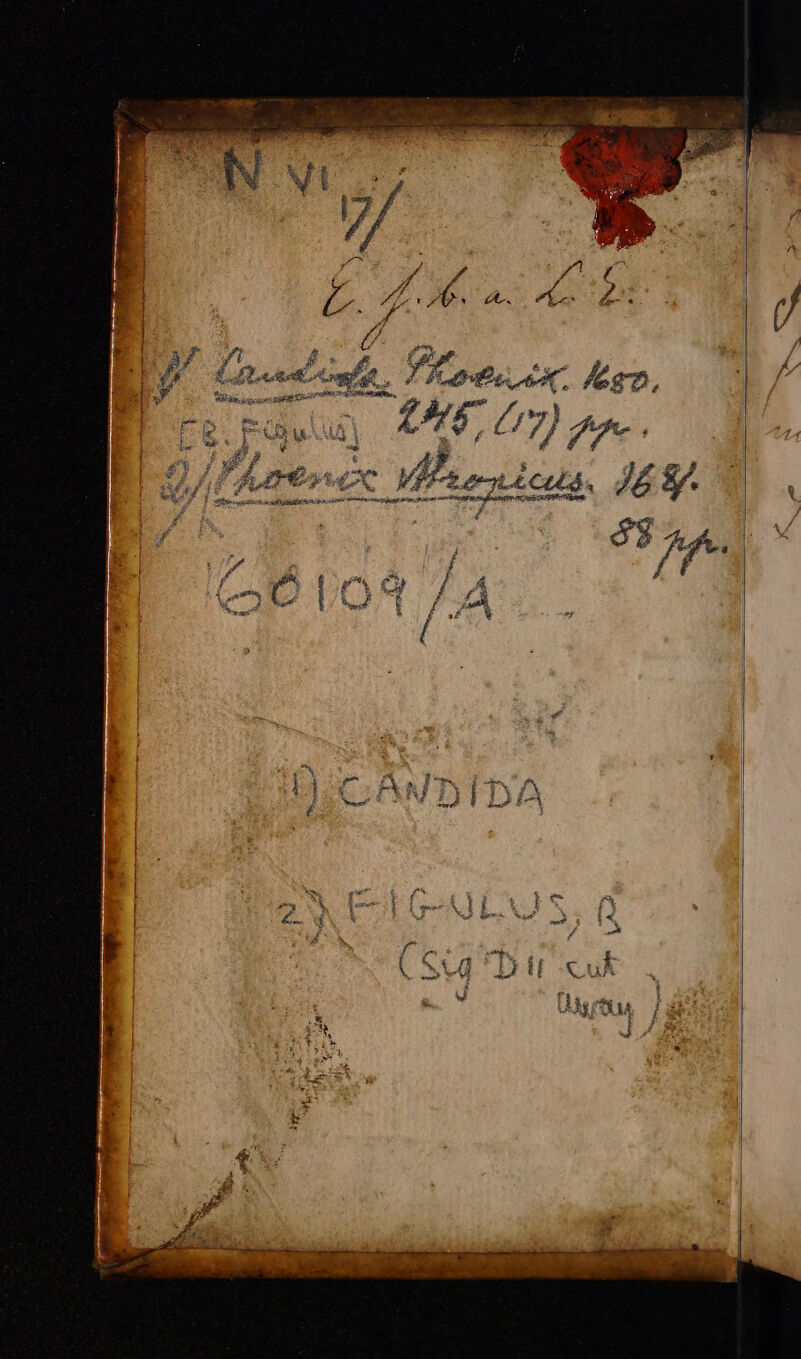 N VI
17/
E. J. b. a. L. S.
1/ Candida, Phoenix. 1680.
[R. Figulus] 245, (17) pp.
2/ Phoenix Atropicus. 168/.
88 pp.
60109/A
1) CANDIDA
2) FIGULUS, B
(Sig D11 cut